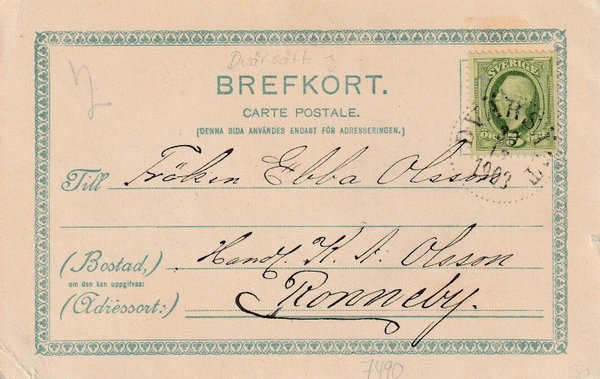 Dvärsätt
BREFKORT.
CARTE POSTALE.
(DENNA SIDA ANVÄNDES ENDAST FÖR ADRESSERINGEN.)
SVERIGE
DVÄRSÄTT
23
12
1903
Till Fröken Ebba Olsson
(Bostad,) Handl. K. A. Olsson
om den kan uppgifvas:
(Adressort:) Ronneby.
7490